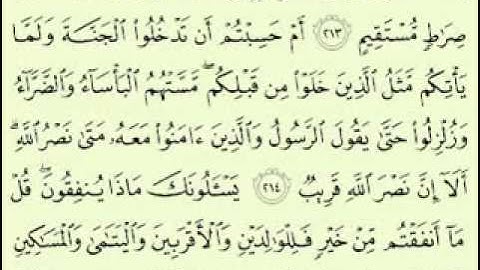 صِرَٰطٍ مُّسْتَقِيمٍ ٢١٣ أَمْ حَسِبْتُمْ أَن تَدْخُلُوا۟ الْجَنَّةَ وَلَمَّا
يَأْتِكُم مَّثَلُ الَّذِينَ خَلَوْا۟ مِن قَبْلِكُم ۖ مَّسَّتْهُمُ الْبَأْسَآءُ وَالضَّرَّآءُ
وَزُلْزِلُوا۟ حَتَّىٰ يَقُولَ الرَّسُولُ وَالَّذِينَ ءَامَنُوا۟ مَعَهُۥ مَتَىٰ نَصْرُ اللَّهِ ۗ
أَلَآ إِنَّ نَصْرَ اللَّهِ قَرِيبٌ ٢١٤ يَسْـَٔلُونَكَ مَاذَا يُنفِقُونَ ۖ قُلْ
مَآ أَنفَقْتُم مِّنْ خَيْرٍ فَلِلْوَٰلِدَيْنِ وَالْأَقْرَبِينَ وَالْيَتَـٰمَىٰ وَالْمَسَـٰكِينِ